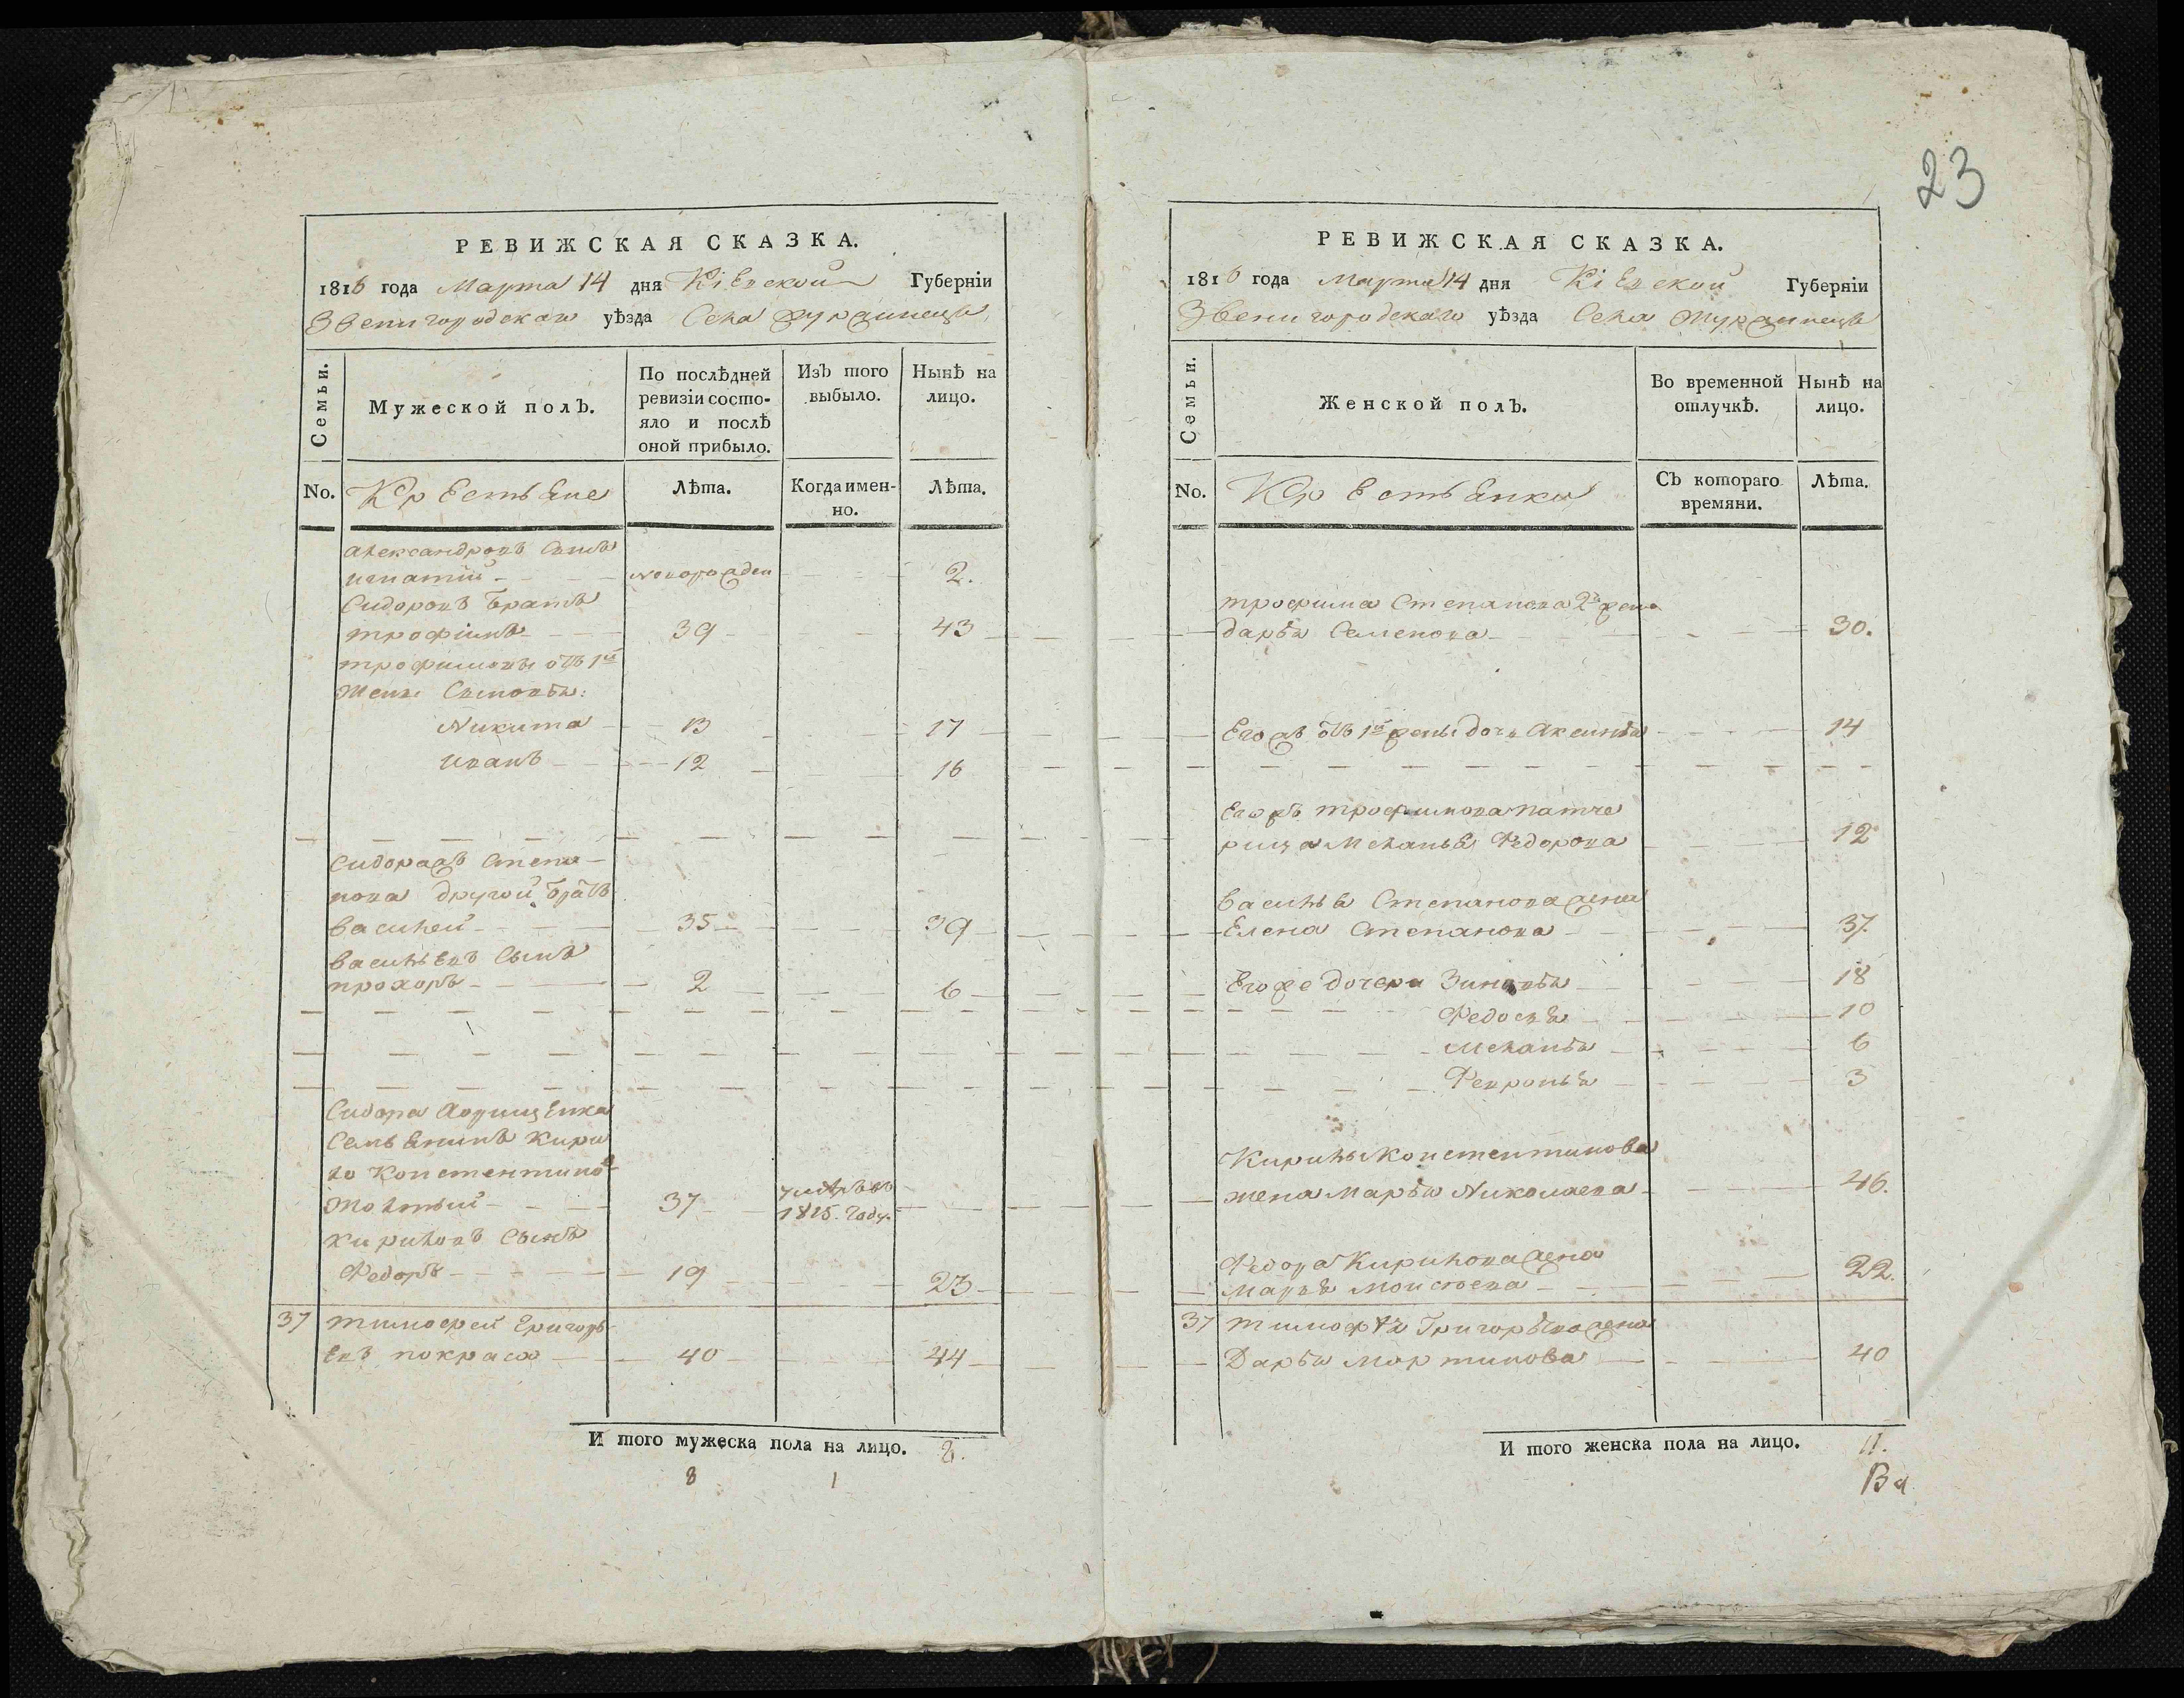 23
РЕВИЖСКАЯ СКАЗКА.
1816 года Марта 14 дня Кіевской Губерніи
Звенигородскаго уѣзда Села Журжинецъ
Семьи.
Мужеской полъ.
По послѣдней
ревизіи состо-
яло и послѣ
оной прибыло.
Изъ того
выбыло.
Нынѣ на
лицо.
No.
Крестьяне
Лѣта.
Когда имен-
но.
Лѣта.
Александровъ Сынъ
Игнатій новорожден 2.
Сидоровъ братъ
трофимъ 39 43
трофимовы отъ 1й
жены Сыновья:
Никита 13 17
иванъ 12 16
Сидора жъ Степа-
нова другой братъ
василей 35 39
васильевъ Сынъ
прохоръ 2 6
Сидора
Семьянинъ Кири
ло Константинов
Жолтый 37 умѣръ въ
1815. году.
Кириловъ Сынъ
Федоръ 19 23
37 тимофей Григорь-
евъ покраса 40 44
И того мужеска пола на лицо. 8.
8 1
РЕВИЖСКАЯ СКАЗКА.
1816 года Марта 14 дня Кіевской Губерніи
Звенигородскаго уѣзда Села Журжинецъ
Семьи.
Женской полъ.
Во временной
отлучкѣ.
Нынѣ на
лицо.
No.
Крестьянки
Съ котораго
времяни.
Лѣта.
трофима Степанова 2я жена
дарья Семенова 30.
Его жъ отъ 1й жены дочь Аксинья 14
Егожъ трофимова патче
рица Меланья Федорова 12
василья Степанова жена
Елена Степанова 37.
Егоже дочери Зиновья 18
Федосья 10
Меланья 6
Февронья 3
Кирилы Константинова
жена Марья Николаева 46.
Федора Кирилова жена
Марья Моисеева 22.
37 тимофѣя Григорьева жена
Дарья Мартинова 40
И того женска пола на лицо. 11.
Ва